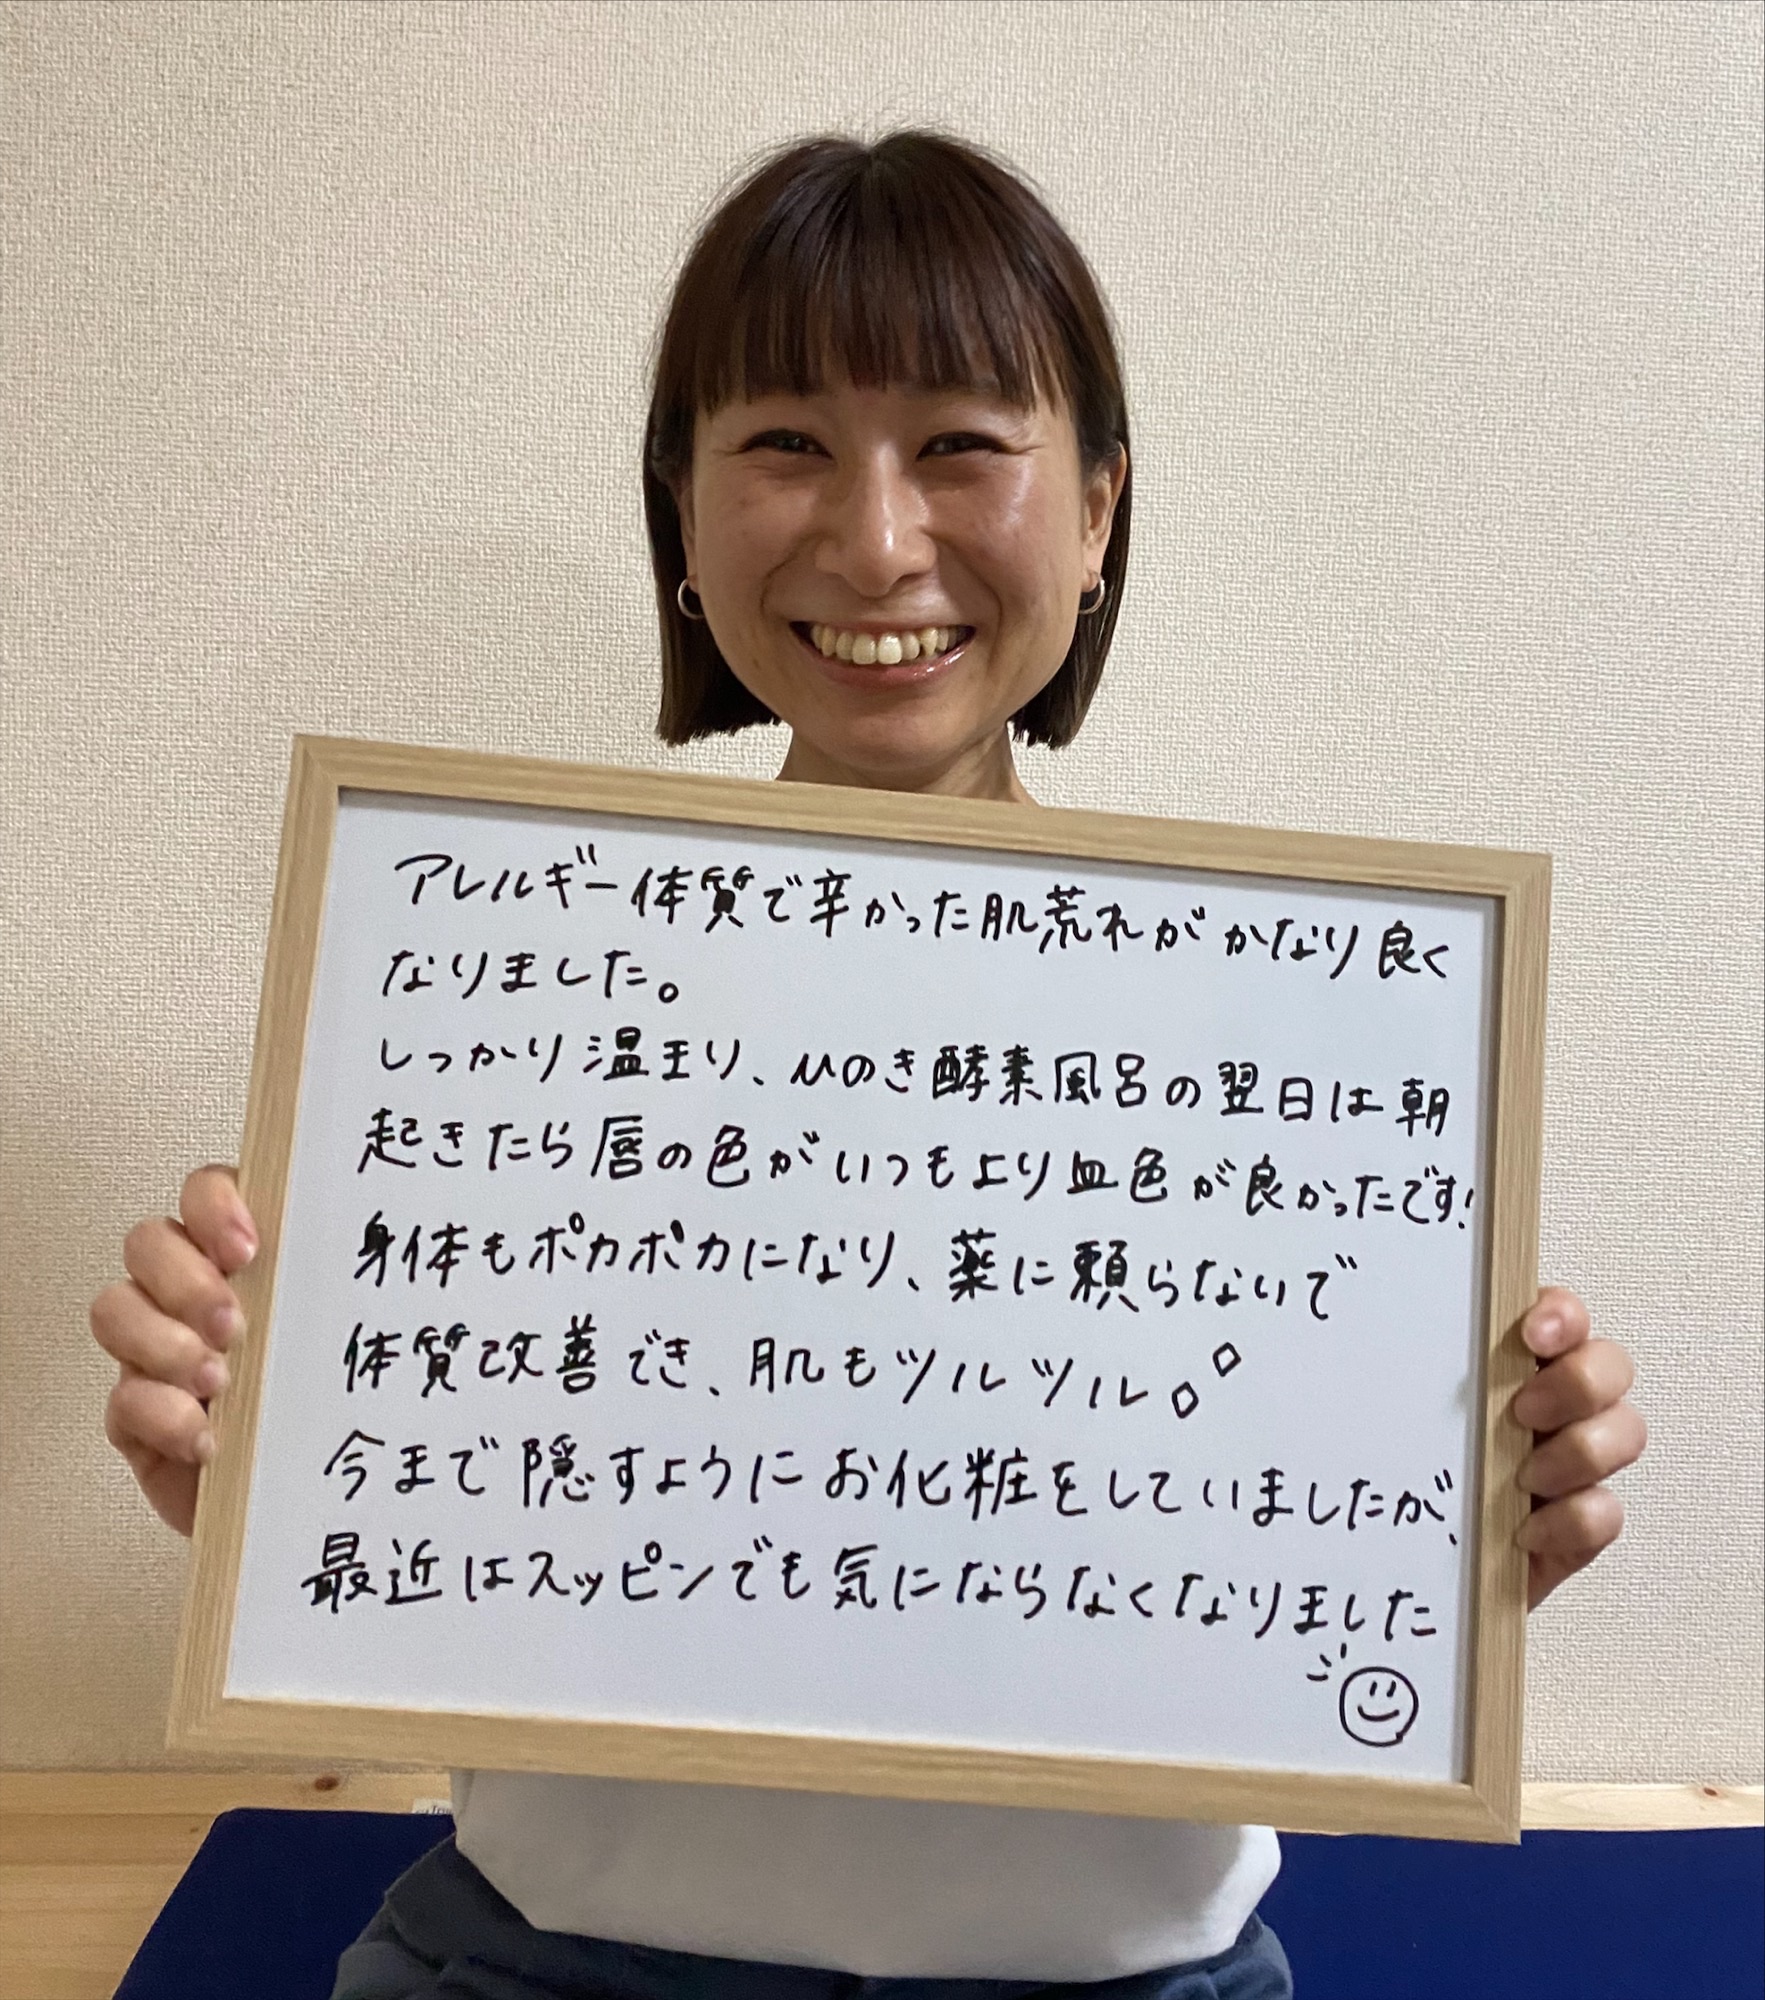 アレルギー体質で辛かった肌荒れがかなり良く
なりました。
しっかり温まり、ひのき酵素風呂の翌日は朝
起きたら唇の色がいつもより血色が良かったです!
身体もポカポカになり、薬に頼らないで
体質改善でき、肌もツルツル。
今まで隠すようにお化粧をしていましたが、
最近はスッピンでも気にならなくなりました